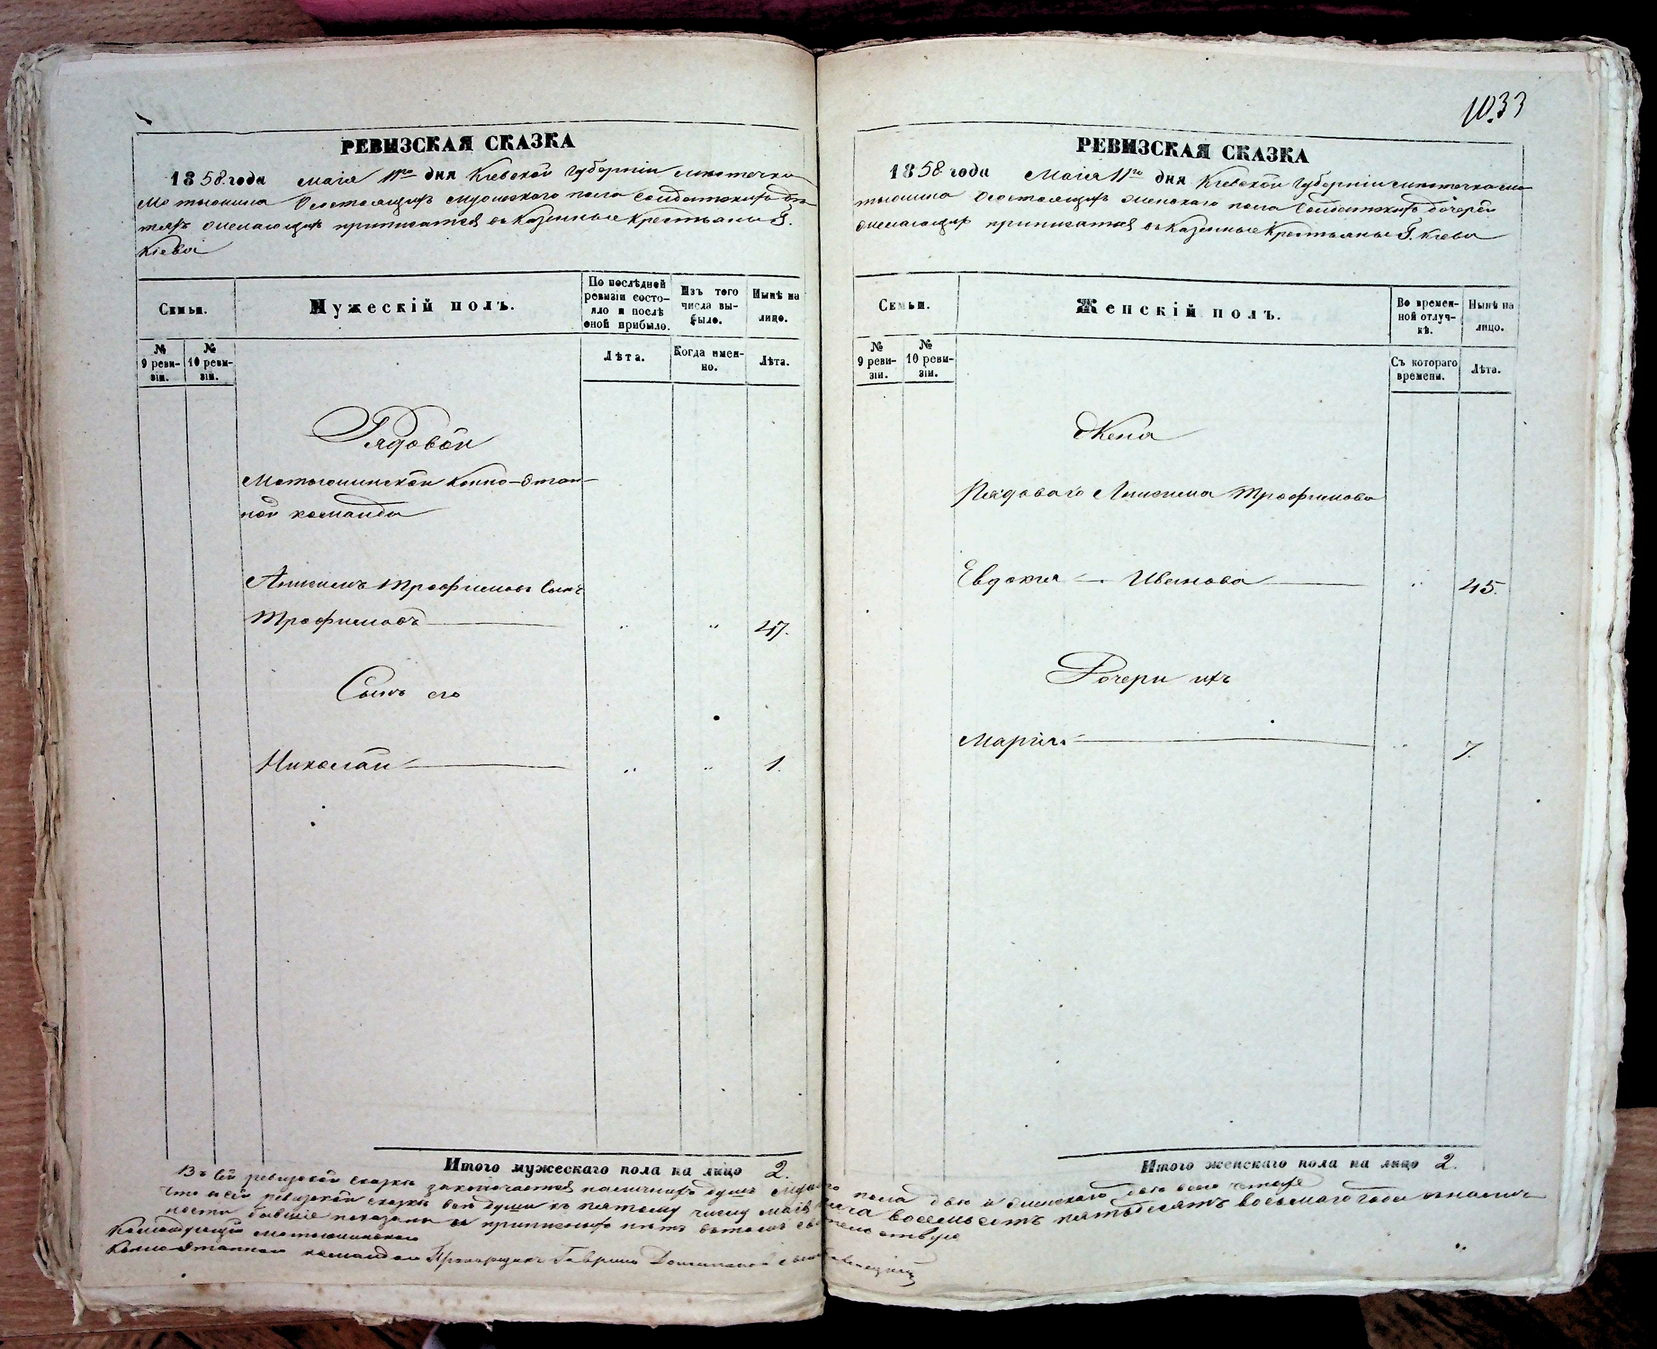 1033
РЕВИЗСКАЯ СКАЗКА
1858 года маія 11го дня Кіевской Губерніи мѣстечка
Мотыжина о состоящихъ мужескаго пола Солдатскихъ дѣ-
тяхъ желающихъ приписатся въ Казенные Крестьяне Г.
Кіева
Семьи.
Мужескій полъ.
По послѣдней ревизіи состояло и послѣ оной прибыло.
Изъ того числа выбыло.
Нынѣ на лицо.
№ 9 ревизіи.
№ 10 ревизіи.
Лѣта.
Когда именно.
Лѣта.
Рядовой
Мотыжинской Конно-этап-
ной команды
Анисимъ Трофимовъ Сынъ
Трофимовъ " " 47.
Сынъ его
Николай " " 1.
Итого мужескаго пола на лицо 2.
РЕВИЗСКАЯ СКАЗКА
1858 года Маія 11го дня Кіевской Губерніи мѣстечка Мо-
тыжина о состоящихъ женскаго пола Солдатскихъ дочерей
желающихъ приписатся въ Казенные Крестьяне Г. Кіева
Семьи.
Женскій полъ.
Во временной отлучкѣ.
Нынѣ на лицо.
№ 9 ревизіи.
№ 10 ревизіи.
Съ котораго времени.
Лѣта.
Жена
Рядоваго Анисима Трофимова
Евдокия Иванова " 45.
Дочери ихъ
Марія " 7.
Итого женскаго пола на лицо 2.
Въ сей ревизской сказкѣ заключается наличныхъ душъ мужескаго пола двѣ и женскаго двѣ всего четыре
что въ сей ревизской сказкѣ всѣ души къ пятому числу маія тысяча восемьсотъ пятьдесятъ восьмаго года
показаны и приписныхъ нѣтъ въ томъ свидѣтельствую
Командующій Мотыжинскою
Конно-этапною командою Прапорщикъ Гаврилъ